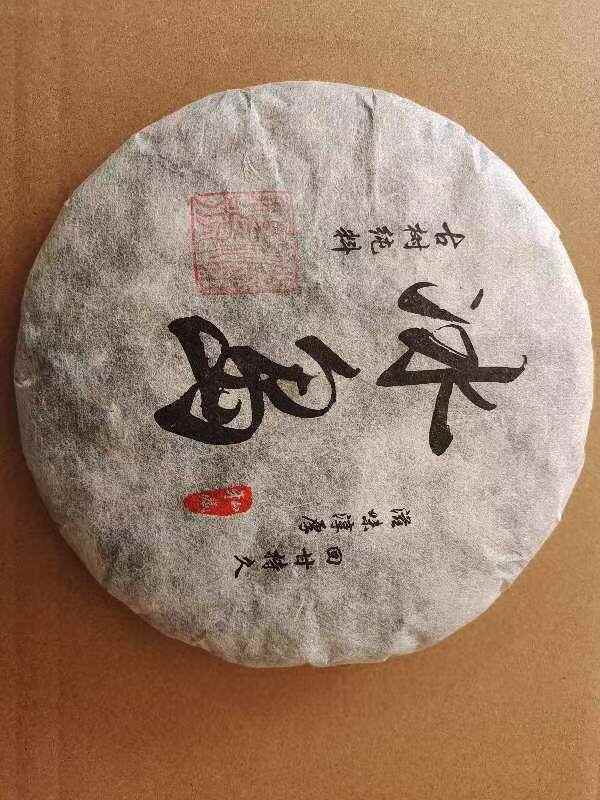 古树纯料
冰岛
滋味淳厚
回甘持久